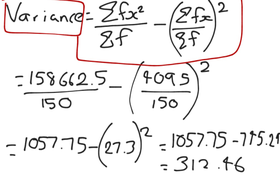 Variance = Σfx²/Σf - (Σfx/Σf)²
= 158662.5/150 - (4095/150)²
= 1057.75 - (27.3)² = 1057.75 - 745.29
= 312.46